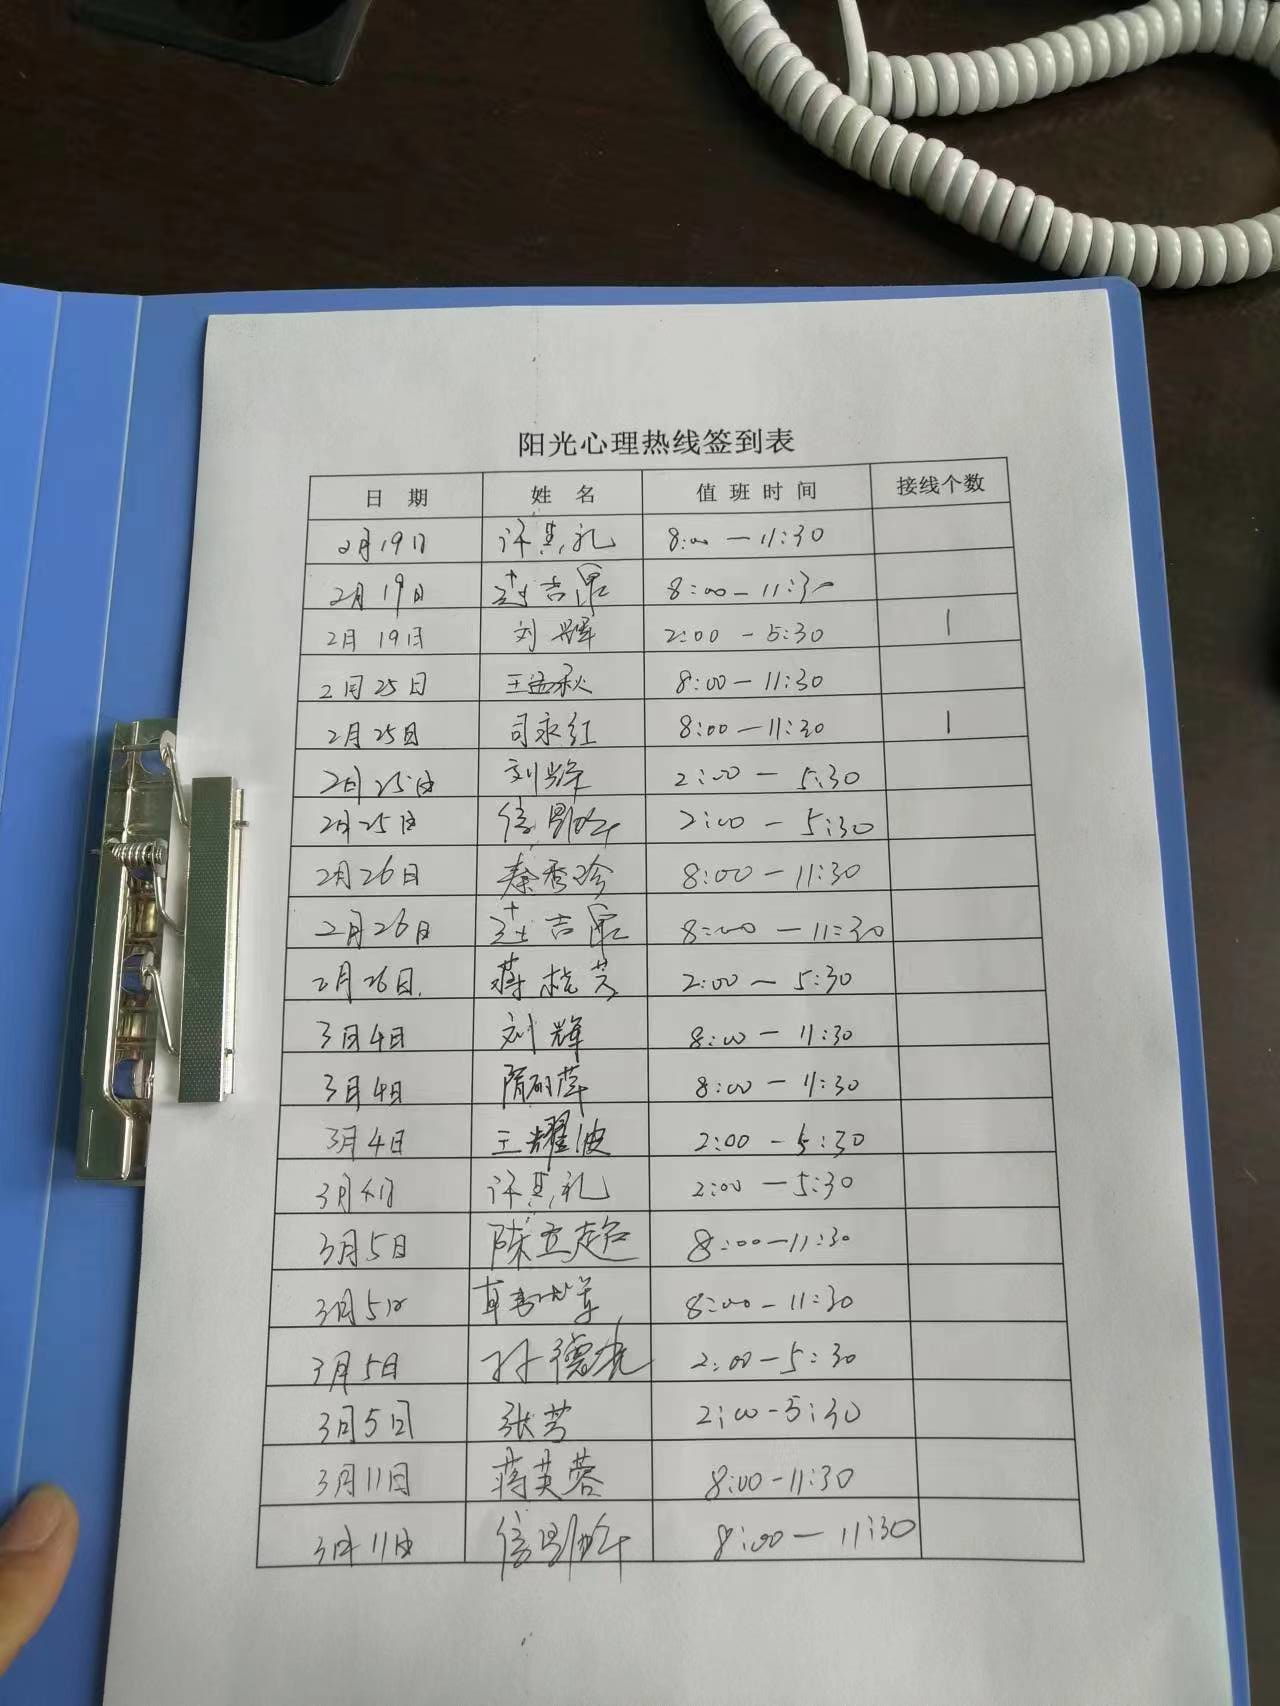 阳光心理热线签到表
日 期 姓 名 值 班 时 间 接线个数
2月19日 许其礼 8:00 — 11:30
2月19日 吉 8:00 — 11:30
2月19日 刘辉 2:00 - 5:30 1
2月25日 王孟秋 8:00 — 11:30
2月25日 司永红 8:00 — 11:30 1
2月25日 刘辉 2:00 — 5:30
2月25日 2:00 — 5:30
2月26日 秦秀珍 8:00 — 11:30
2月26日 吉 8:00 — 11:30
2月26日. 蒋桂芳 2:00 — 5:30
3月4日 刘辉 8:00 — 11:30
3月4日 隋 萍 8:00 — 11:30
3月4日 王耀波 2:00 - 5:30
3月4日 许其礼 2:00 — 5:30
3月5日 陈立超 8:00 — 11:30
3月5日 8:00 — 11:30
3月5日 孙德 2:00 — 5:30
3月5日 张芳 2:00 - 5:30
3月11日 蒋芙蓉 8:00 - 11:30
3月11日 8:00 — 11:30